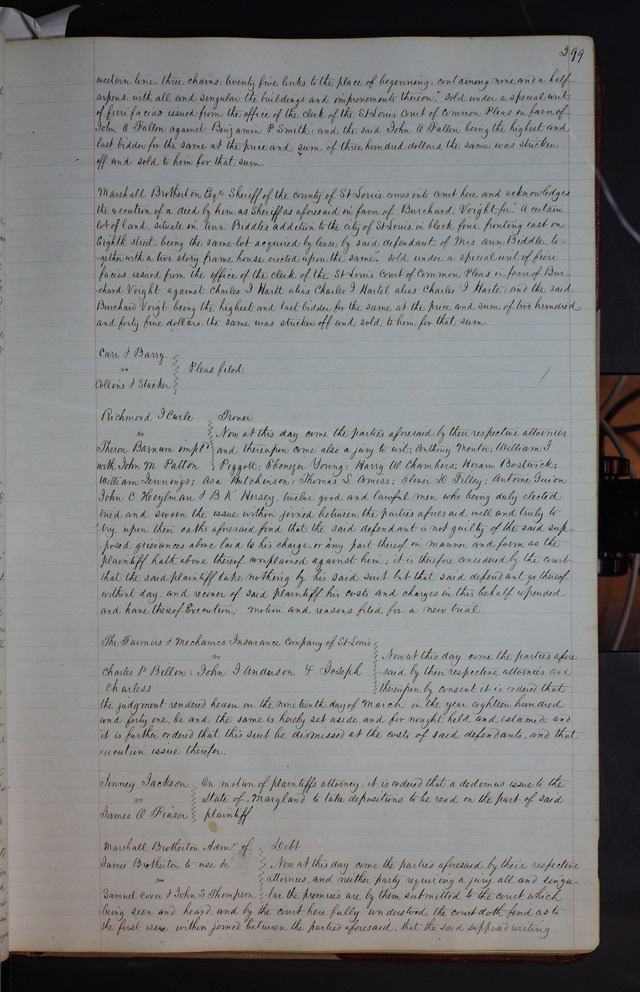 299
western line three chains: twenty five links to the place of beginning: containing nine and a half
arpens with all and singular the buildings and improvements thereon." Sold under a special writ
of fieri facias issued from the office of the clerk of the St Louis Court of Common Pleas in favor of
John O Fallon against Benjamin P Smith: and the said John O Fallon being the highest and
last bidder for the same at the price and sum of three hundred dollars, the same was stricken
off and sold to him for that sum.
Marshall Brotherton Esqr Sheriff of the county of St Louis comes into court here and acknowledges
the execution of a deed by him as Sheriff as aforesaid in favor of Burchard Voight for "A certain
lot of land situate in Ann Biddles addition to the city of St Louis in block four, fronting east on
Eighth street being the same lot acquired by lease by said defendant of Mrs Ann Biddle, to-
-gether with a two story frame house erected upon the same". Sold under a special writ of fieri
facias issued from the office of the clerk of the St Louis Court of Common Pleas in favor of Bur-
chard Voight against Charles I Hartt alias Charles I Hartel alias Charles I Harte: and the said
Burchard Voigt being the highest and last bidder for the same at the price and sum of two hundred
and forty five dollars, the same was stricken off and sold to him for that sum.
Carr & Barry
vs
Pleas filed
Collins & Stacker
Richmond I Curle
Trover
vs
Now at this day come the parties aforesaid by their respective attornies
Theron Barnum impld
and thereupon come also a jury to wit: Anthony Mentor, William I
with John M Patton
Peggott; Ebenezer Young; Harry W Chambers; Hiram Bostwick;
William Jennings; Asa Hutchinson; Thomas L Amiss; Oliver D Filley; Antoine Guion
John C Heylman & B K Hersey. twelve good and lawful men, who being duly elected
tried and sworn the issue within joined between the parties aforesaid well and truly to
try, upon their oaths aforesaid find that the said defendant is not guilty of the said sup-
posed grievances above laid to his charge or any part thereof in manner and form as the
plaintiff hath above thereof complained against him; it is therefore considered by the court
that the said plaintiff take nothing by his said suit but that said defendant go thereof
without day and recover of said plaintiff his costs and charges in this behalf expended
and have thereof Execution; motion and reasons filed for a new trial.
The Farmers & Mechanics Insurance Company of St Louis
vs
Now at this day come the parties afore
Charles P Billon; John I Anderson & Joseph
-said by their respective attornies and
Charless
thereupon by consent it is ordered that
the judgment rendered herein on the nineteenth day of March in the year eighteen hundred
and forty one, be and the same is hereby set aside, and for nought held and esteemed: and
it is further ordered that this suit be dismissed at the costs of said defendants, and that
execution issue therefor.
Jackson
On motion of plaintiffs attorney, it is ordered that a dedimus issue to the
vs
State of Maryland to take depositions to be read on the part of said
James O Fraser
plaintiff
Marshall Brotherton Admr of
Debt
James Brotherton to use &c
Now at this day come the parties aforesaid by their respective
vs
attornies, and neither party requiring a jury, all and singu-
Samuel Cover & John S Thompson
lar the premises are by them submitted to the court which
being seen and heard and by the court here fully understood the court doth find as to
the first issue within joined between the parties aforesaid, that the said supposed writing